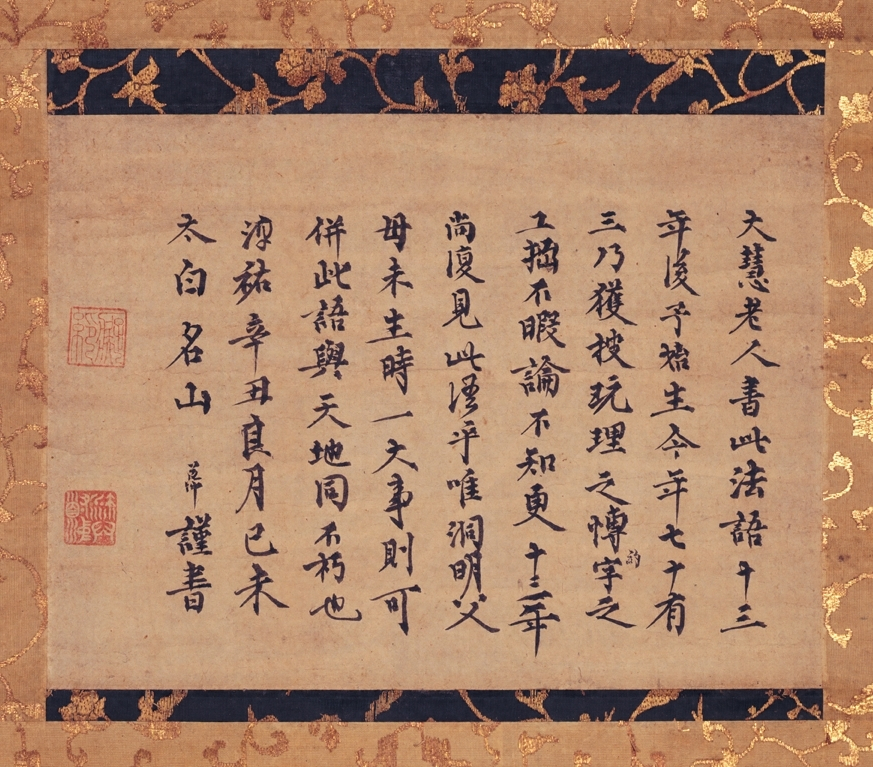 大慧老人書此法語十三
年後予始生今年七十有
三乃獲披玩理之愽的字之
工揔不暇論不知更十三年
尚復見此語乎唯洞明父
母未生時一大事則可
併此語與天地同不朽也
淳祐辛丑良月己未
太白名山 謹書